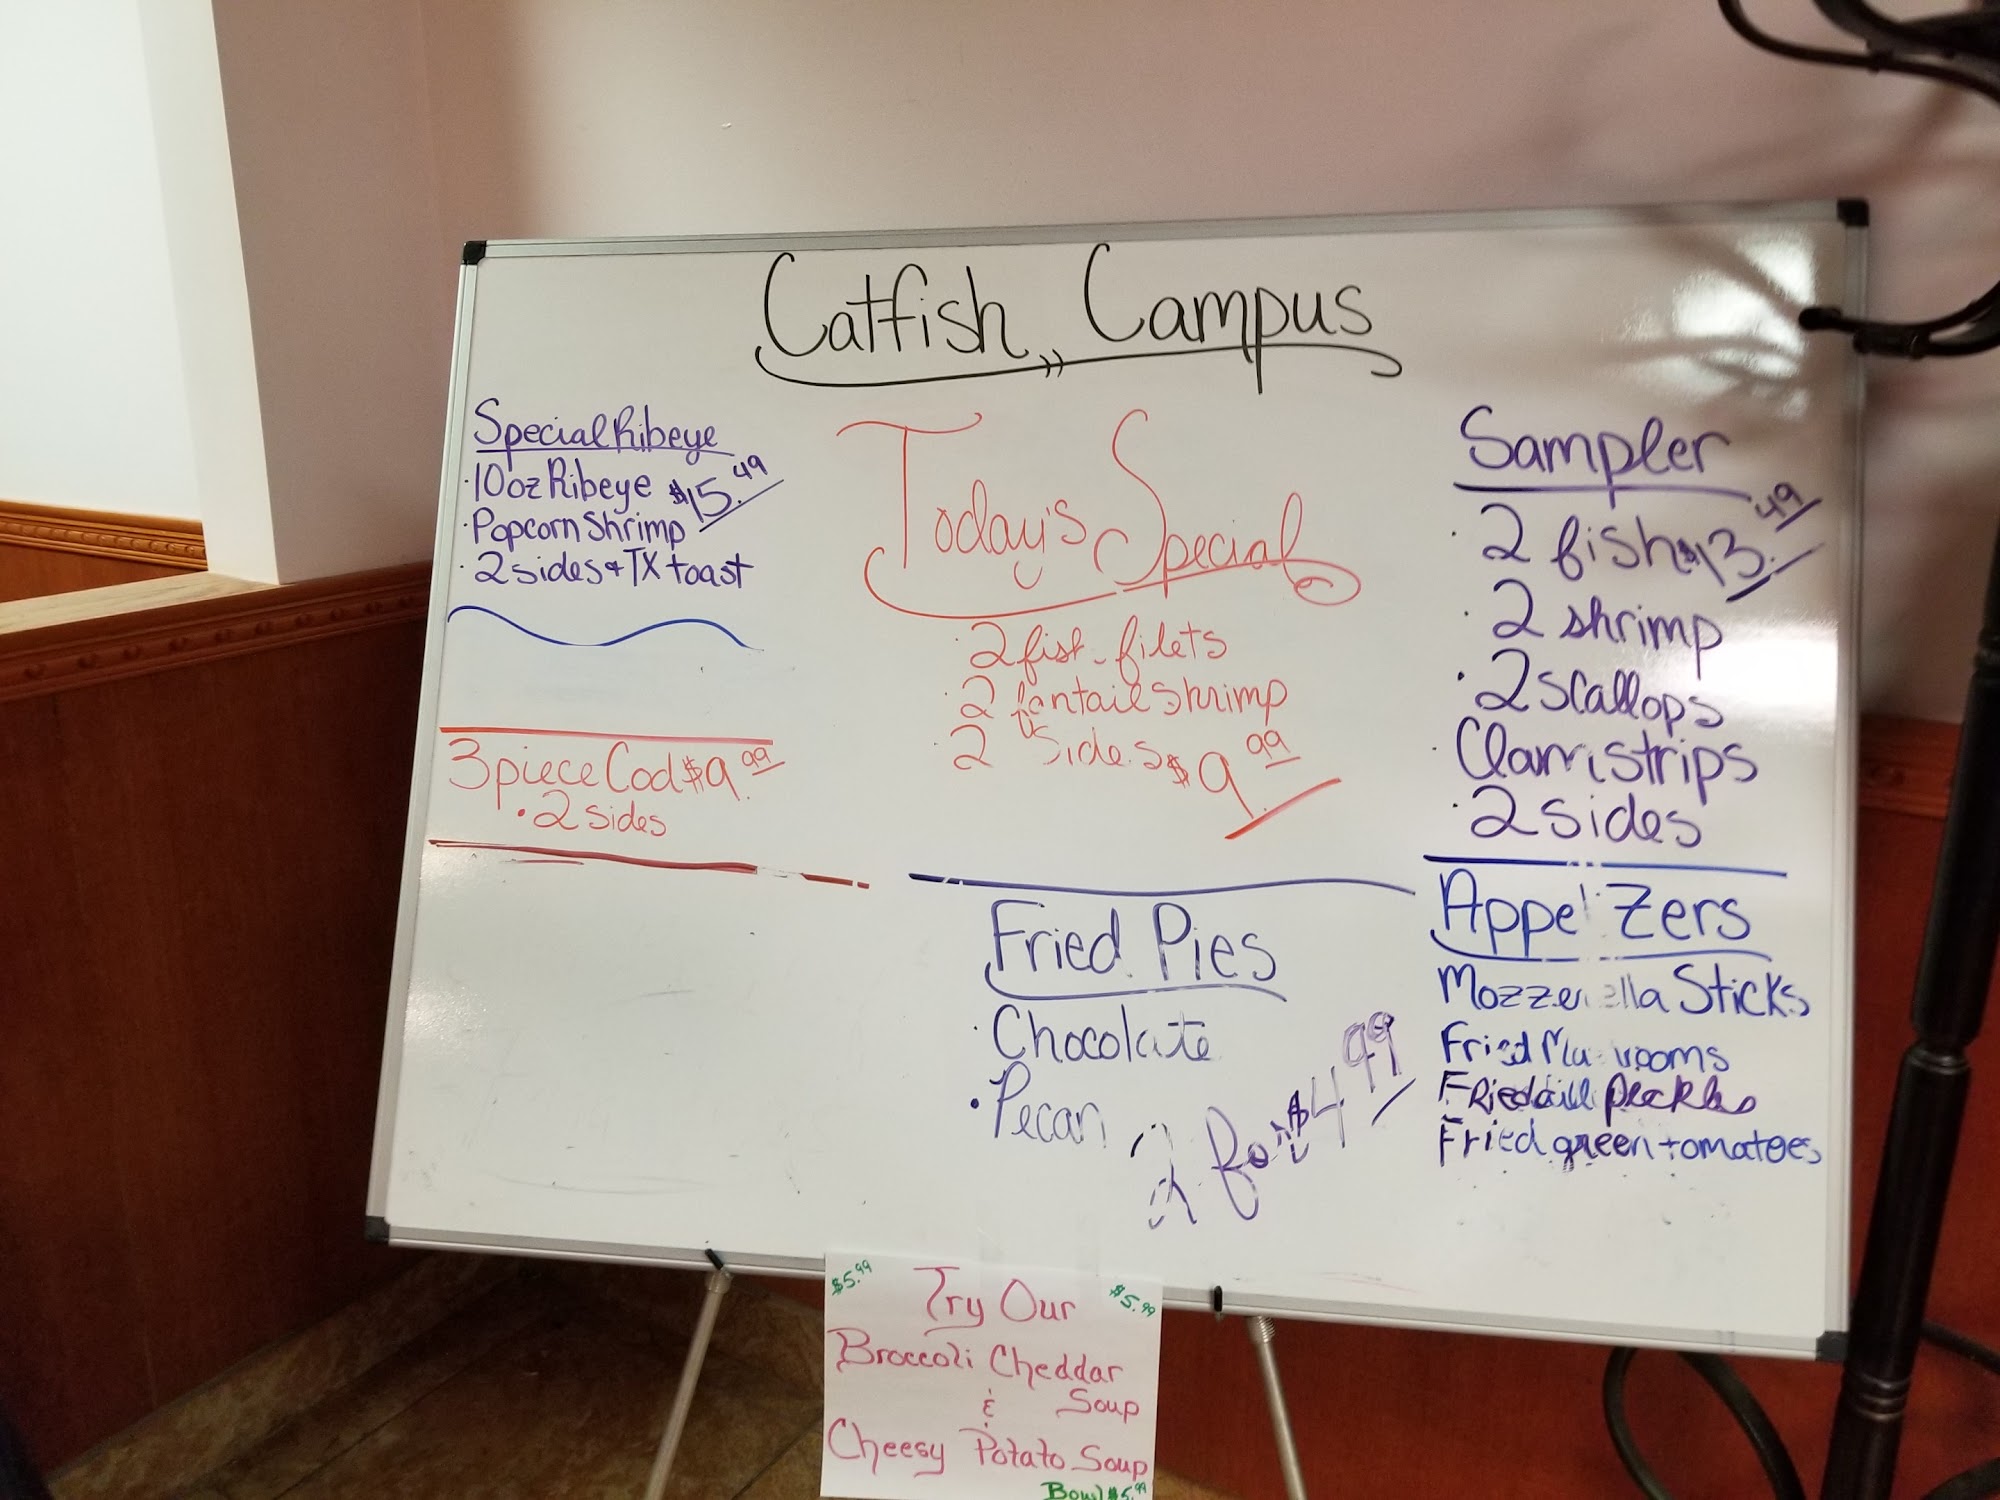 Catfish Campus
Special Ribeye
· 10oz Ribeye $15.49
· Popcorn Shrimp
· 2 sides + TX toast
3 piece Cod $9.99
· 2 sides
Today's Special
· 2 fish filets
· 2 fantail shrimp
· 2 sides $9.99
Sampler
· 2 fish $13.49
· 2 shrimp
· 2 scallops
· Clam strips
· 2 sides
Fried Pies
· Chocolate
· Pecan
2 for $4.99
Appetizers
Mozzerella Sticks
Fried Mushrooms
Fried dill
Fried green tomatoes
$5.99 Try Our $5.99
Broccoli Cheddar
& Soup
Cheesy Potato Soup
Bowl $5.99